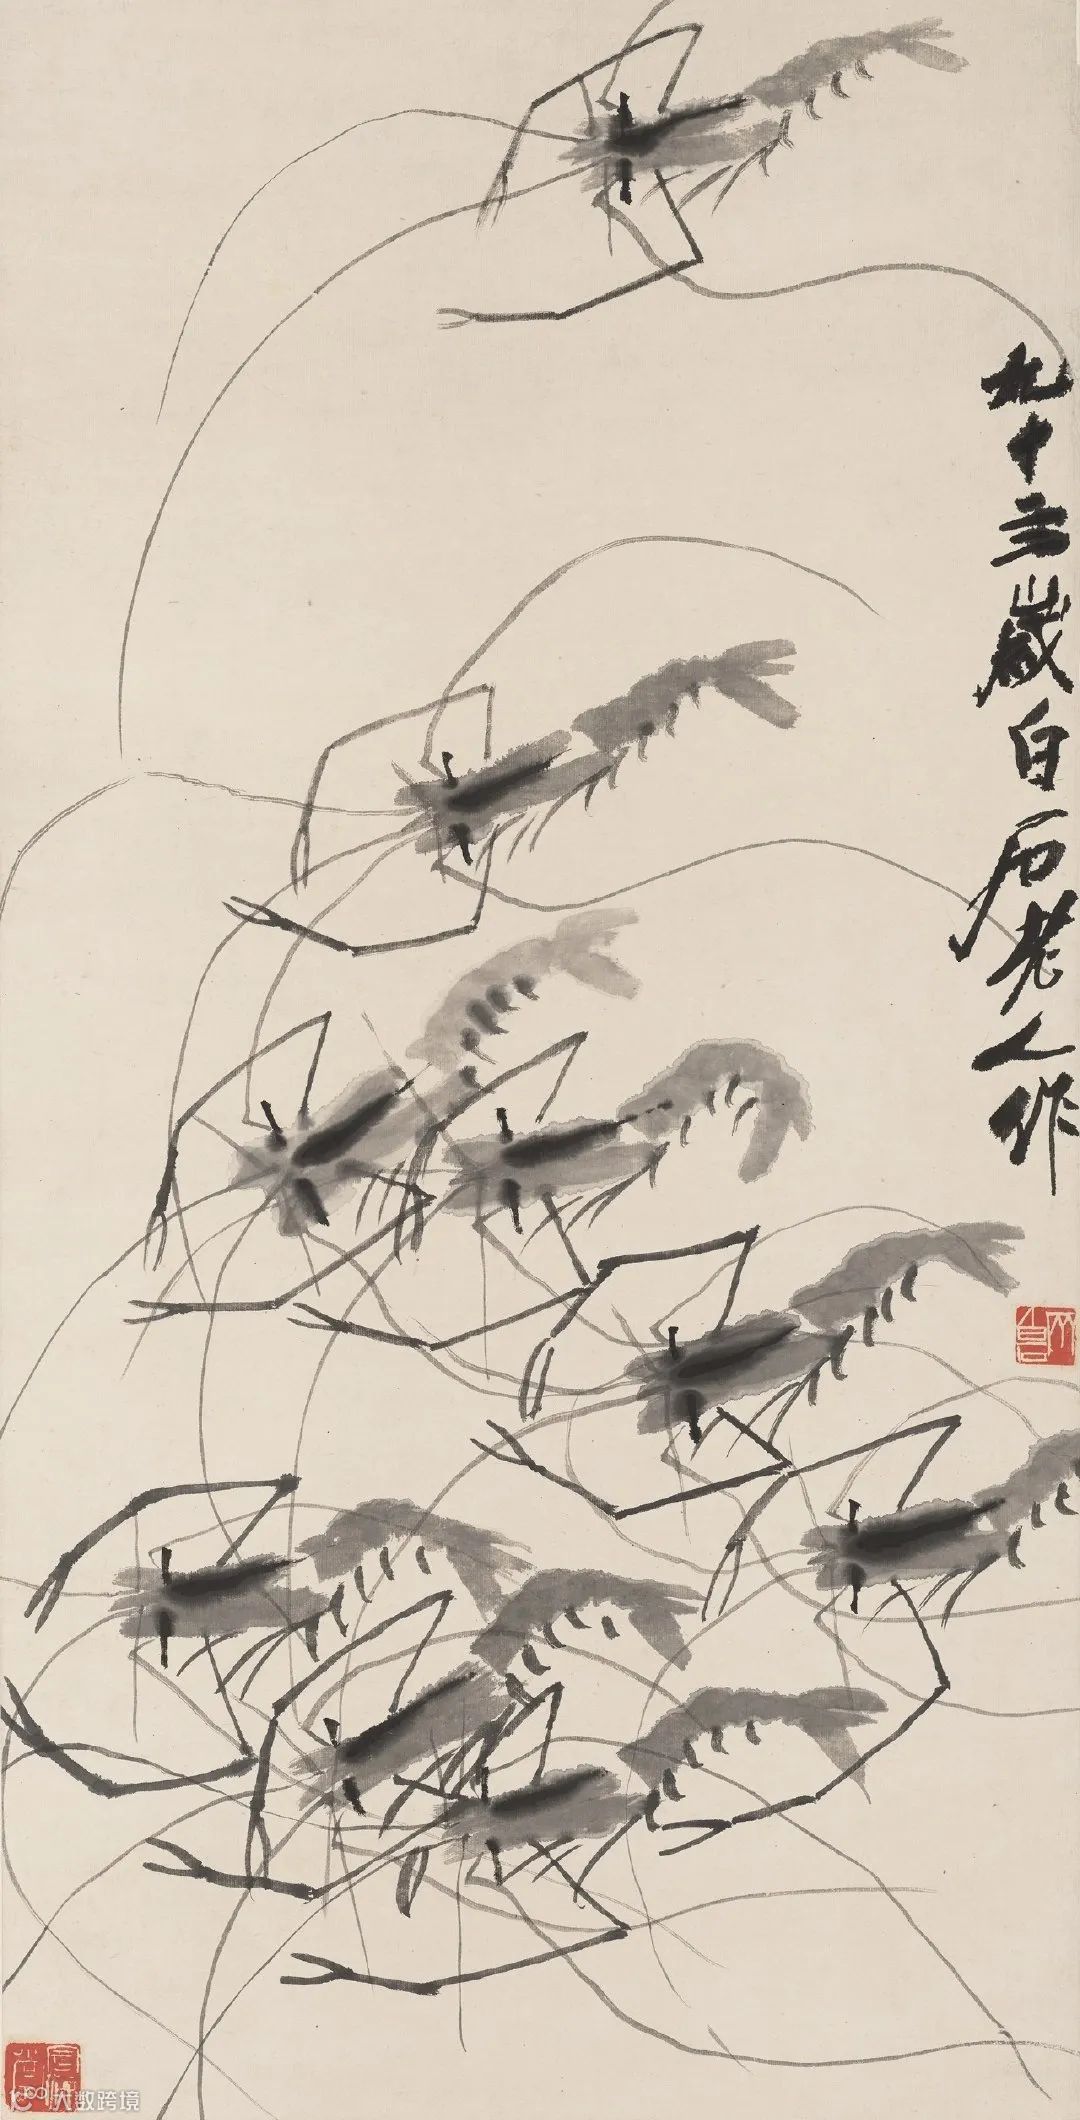 九十五歲白石老人作
大数跨境